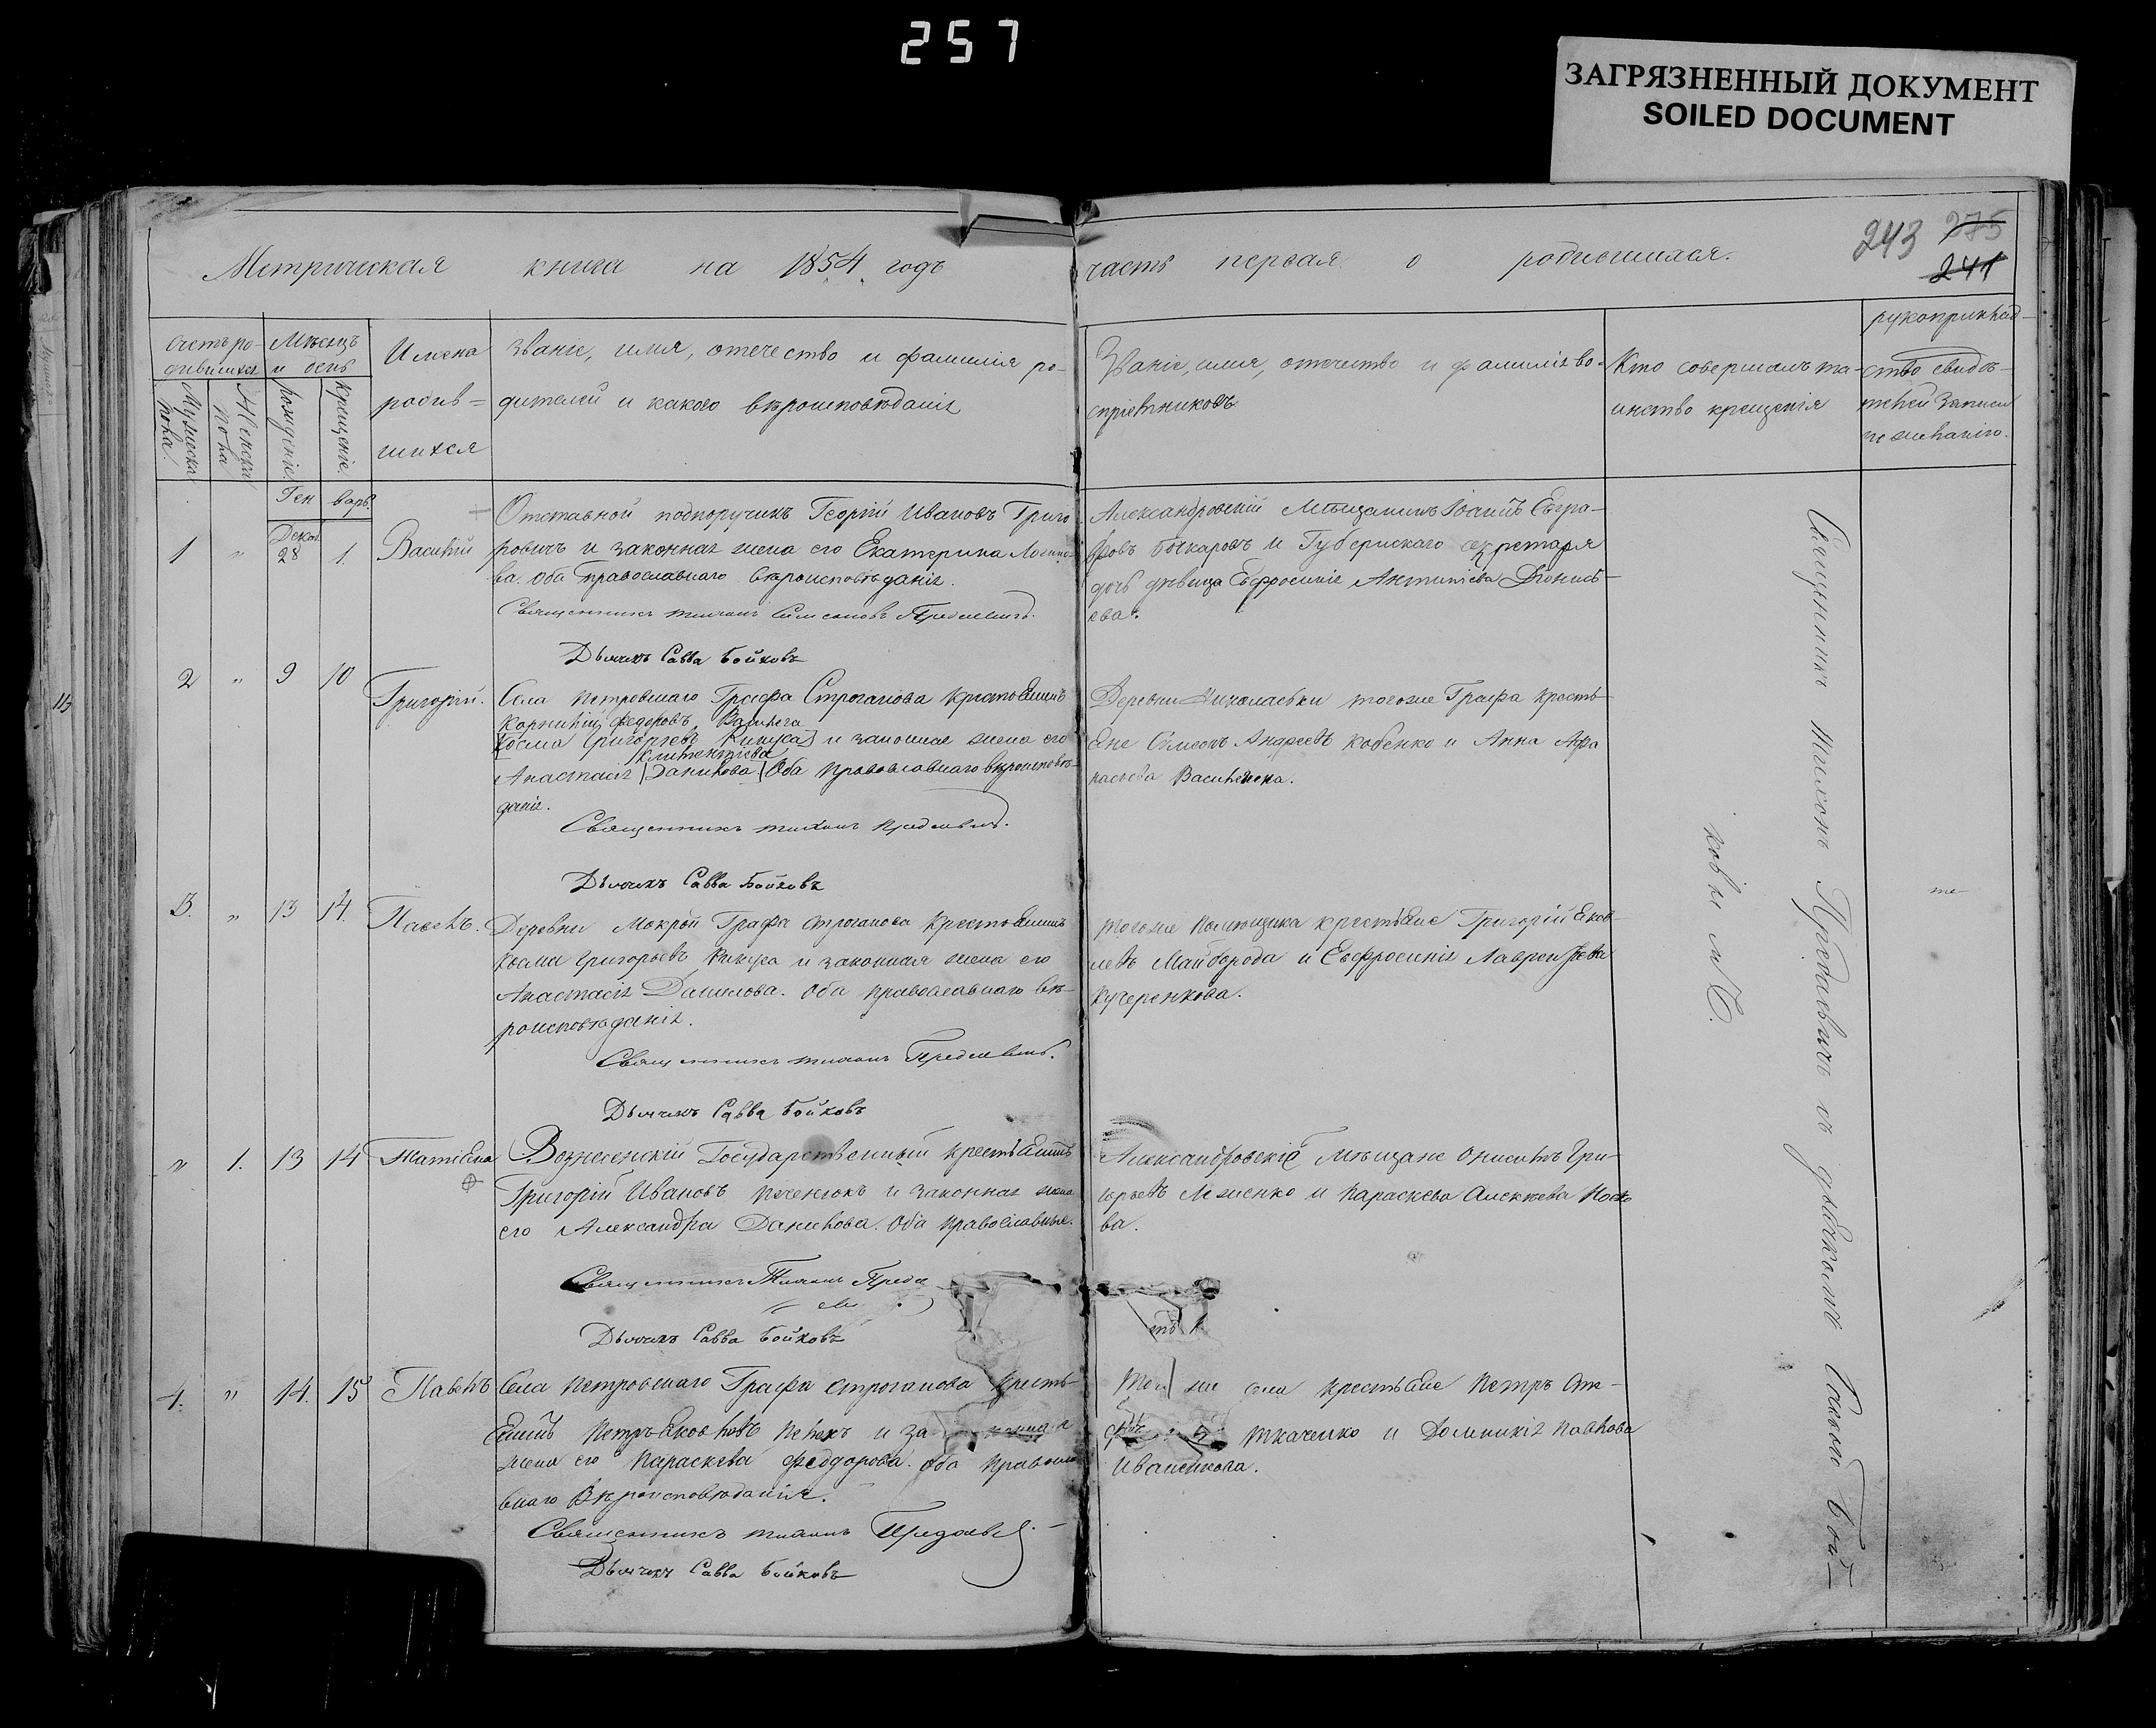 257
ЗАГРЯЗНЕННЫЙ ДОКУМЕНТ
SOILED DOCUMENT
243 275
241
Метрическая книга на 1854 годъ
часть первая о родившихся.
Счетъ ро-
дившихся
Мужеска
пола.
Женска
пола
Мѣсяцъ
и день
рожденіе
крещеніе.
Имена
родив=
шихся
Званіе, имя, отечество и фамилія ро-
дителей и какого вѣроисповѣданія
Званіе, имя, отечество и фамилія во-
спріемниковъ
Кто совершалъ та-
инство крещенія
рукоприклад-
ство свидѣ-
телей записи
по желанію.
Ген варь.
1 " Декаб 28 1. Василій
Отставной подпоручикъ Георгій Ивановъ Григо
ровичъ и законная жена его Екатерина Логино-
ва. Оба Православнаго вѣроисповѣданія.
Священникъ Тихонъ
Дьячекъ Савва Бойковъ
Александровскій Мѣщанинъ Іоаннъ Евгра-
фовъ Бочкаровъ и Губернскаго секретаря
дочь дѣвица Евфросинія Антипіева Діонись-
ева.
2 " 9 10 Григорій.
Села Петровскаго Графа Строганова крестьянинъ
Корнилій Федоровъ
Косма Григорьевъ Кикуха и законная жена его
Климентіева
Анастасія Данилова Оба православнаго вѣроисповѣ-
данія.
Священникъ Тихонъ
Дьячекъ Савва Бойковъ
Деревни Николаевки тогоже Графа кресть-
яне Симеонъ Андреевъ Кобенко и Анна Афа
насьева Василенкова.
3. " 13 14. Павелъ.
Деревни Мокрой Графа Строганова крестьянинъ
Косма Григорьевъ Кикуха и законная жена его
Анастасія Данилова. Оба православнаго вѣ-
роисповѣданія.
Священникъ Тихонъ
Дьячекъ Савва Бойковъ
тогоже помѣщика крестьяне Григорій Яков-
левъ Майборода и Евфросинія Лаврентьева
Кучеренкова.
" 1. 13 14 Татіяна
Вознесенскій Государственный крестьянинъ
Григорій Ивановъ Печенюкъ и законная жена
его Александра Данилова. Оба православные.
Священникъ Тихонъ
Дьячекъ Савва Бойковъ
Александровскіе Мѣщане Онисимъ Гри-
горьевъ и Параскева Алексѣева Носко
ва.
4. " 14. 15 Павелъ
Села Петровскаго Графа Строганова кресть-
янинъ Петръ Яковлевъ и законная
жена его Параскева Феодорова. Оба православ
внаго Вѣроисповѣданія.
Священникъ Тихонъ
Дьячекъ Савва Бойковъ
Того же села крестьяне Петръ
Ткаченко и Домникія Павлова
Иваненкова.
Священникъ Тихонъ съ дьячкомъ Саввою Бой-
ковымъ.